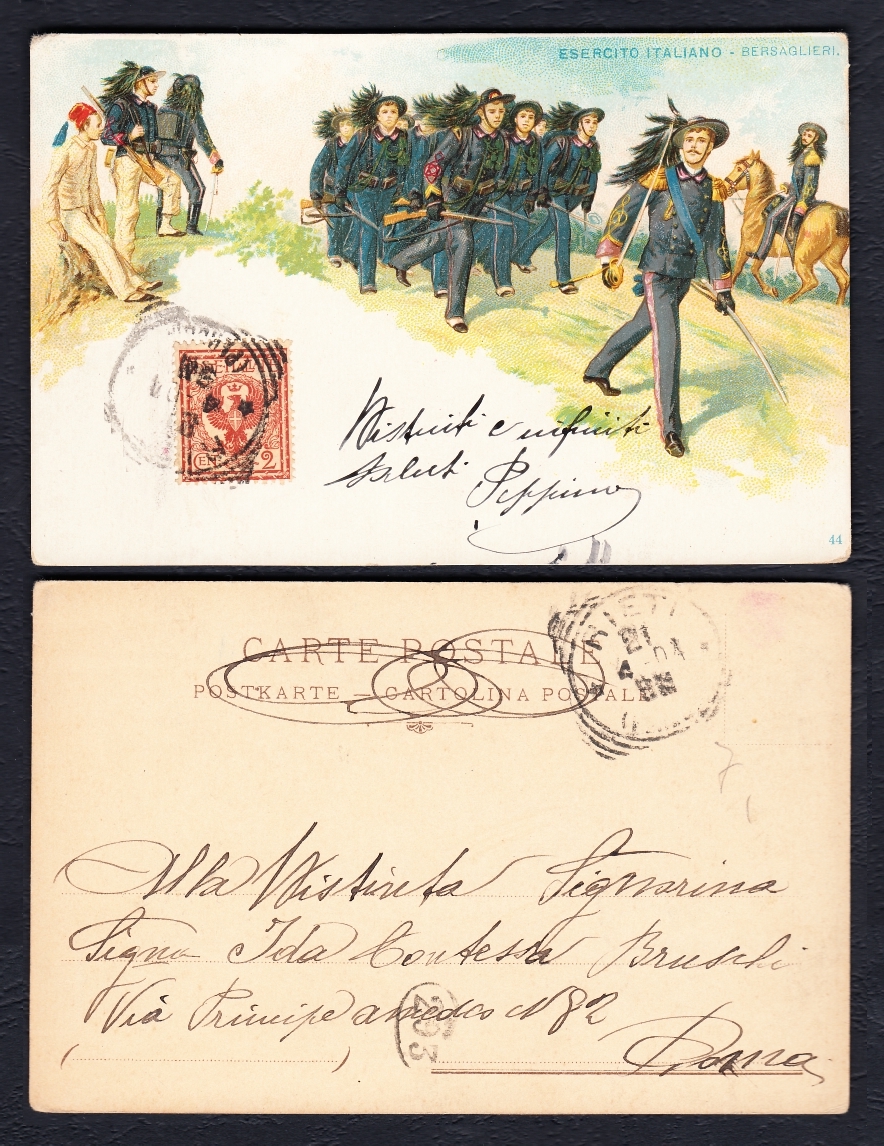 ESERCITO ITALIANO - BERSAGLIERI.
2
Distinti e infiniti
saluti Peppino
44
CARTE POSTALE
POSTKARTE — CARTOLINA POSTALE
RIETI
21
4-04
Alla Distinta Signorina
Signa Ida Contessa Bruschi
Via Principe amedeo N 82
Roma
293